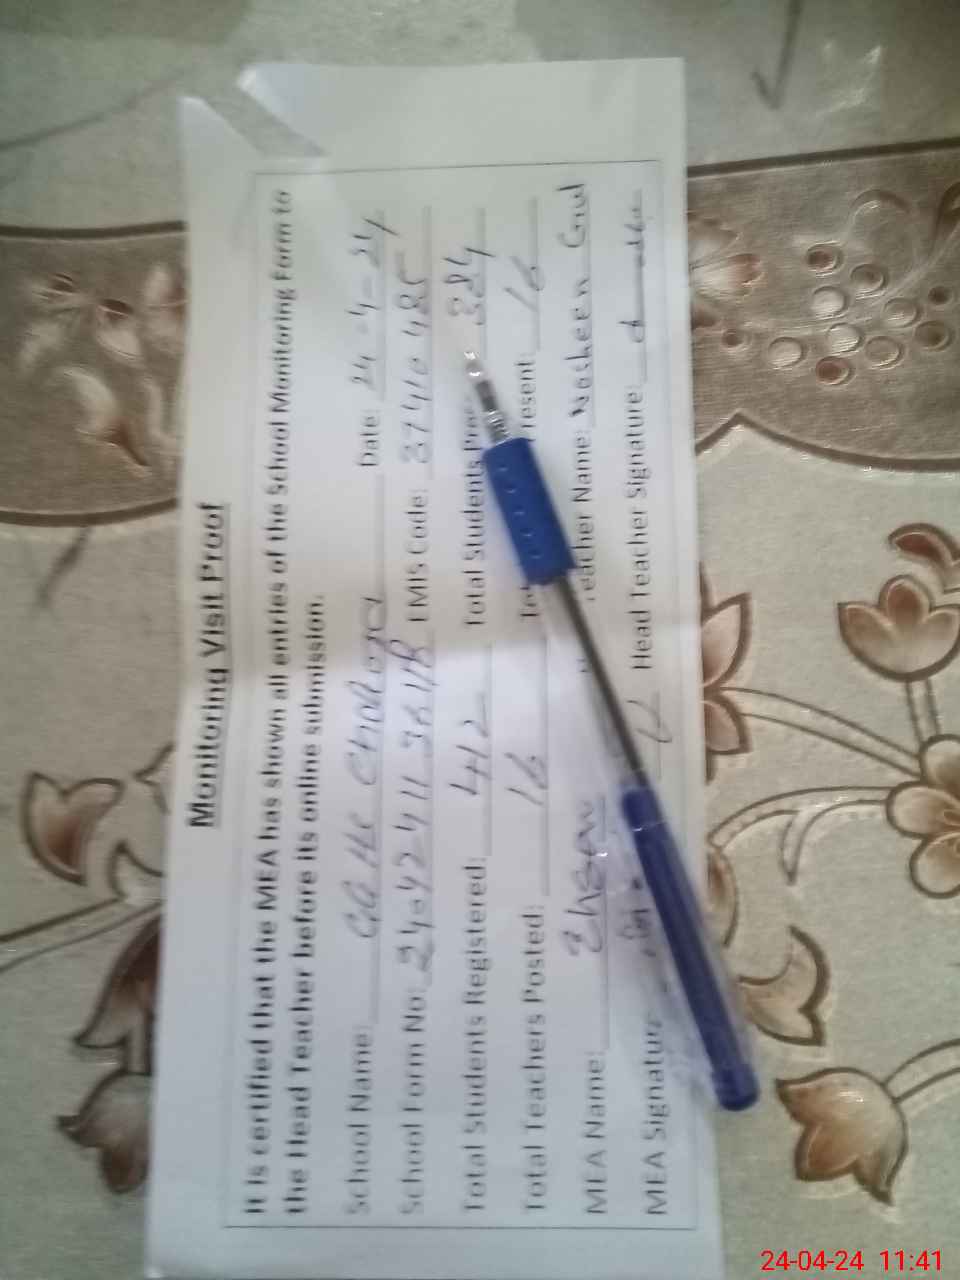 Monitoring Visit Proof
It is certified that the MEA has shown all entries of the School Monitoring Form to
the Head Teacher before its online submission.
School Name: Date: 24-4-24
School Form No: EMIS Code: 37410485
Total Students Registered: 442 Total Students Pre 384
Total Teachers Posted: 16 resent: 16
MEA Name: Ehsan eacher Name: Nosheen Gul
MEA Signature Head Teacher Signature:
24-04-24 11:41